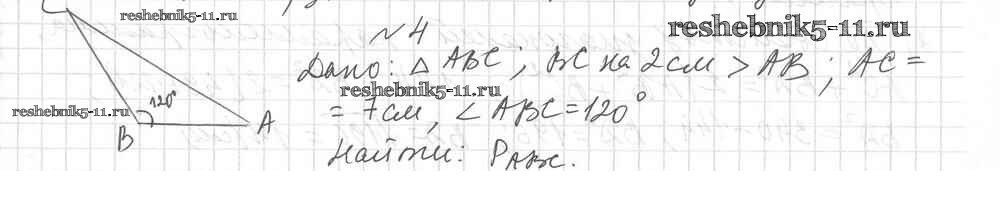 C
reshebnik5-11.ru
№4
reshebnik5-11.ru
Дано: △ ABC; BC на 2 см > AB; AC =
reshebnik5-11.ru
= 7 см, ∠ ABC = 120°
120°
reshebnik5-11.ru
B
A
Найти: P ABC.